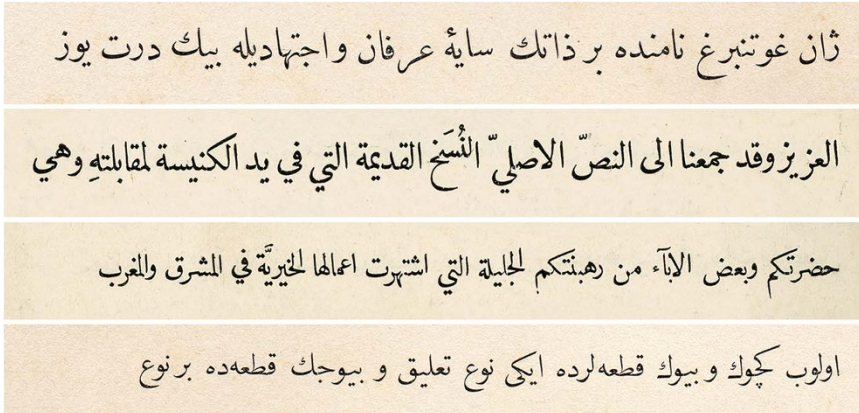 ژان غوتنبرغ نامنده بر ذاتك سایهٔ عرفان واجتهادیله بیك درت یوز
العزيز وقد جمعنا الى النصّ الاصليّ النُسَخ القديمة التي في يد الكنيسة لمقابلتهِ وهي
حضرتكم وبعض الابآء من رهبنتكم الجليلة التي اشتهرت اعمالها الخيريَّة في المشرق والمغرب
اولوب كچوك و بیوك قطعه‌لرده ایکی نوع تعلیق و بیوجك قطعه‌ده بر نوع